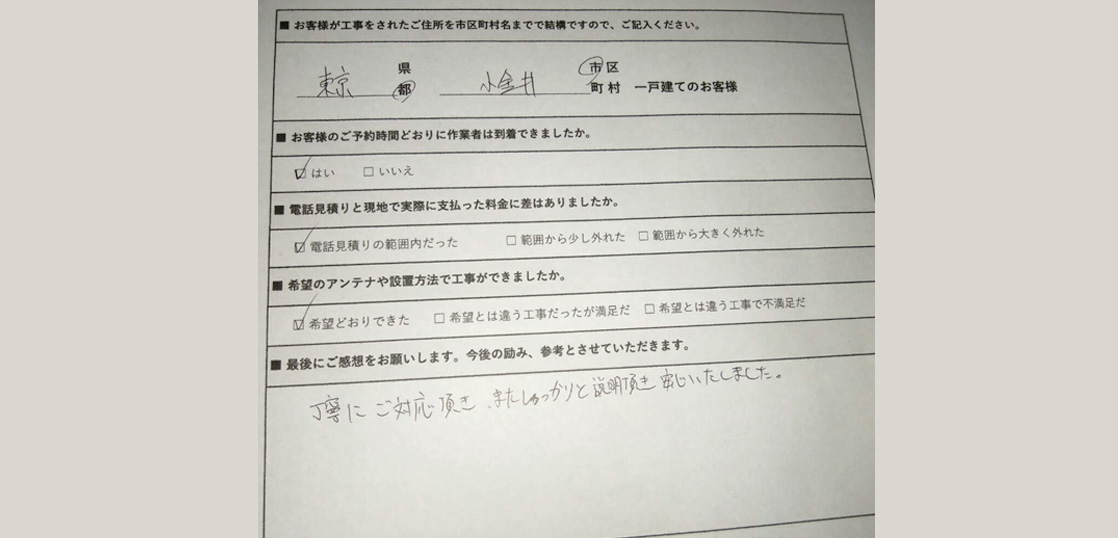 ■ お客様が工事をされたご住所を市区町村名までで結構ですので、ご記入ください。
東京 県都 小金井 市区町村 一戸建てのお客様
■ お客様のご予約時間どおりに作業者は到着できましたか。
☑ はい □ いいえ
■ 電話見積りと現地で実際に支払った料金に差はありましたか。
☑ 電話見積りの範囲内だった □ 範囲から少し外れた □ 範囲から大きく外れた
■ 希望のアンテナや設置方法で工事ができましたか。
☑ 希望どおりできた □ 希望とは違う工事だったが満足だ □ 希望とは違う工事で不満足だ
■ 最後にご感想をお願いします。今後の励み、参考とさせていただきます。
丁寧にご対応頂き、またしっかりと説明頂き安心いたしました。